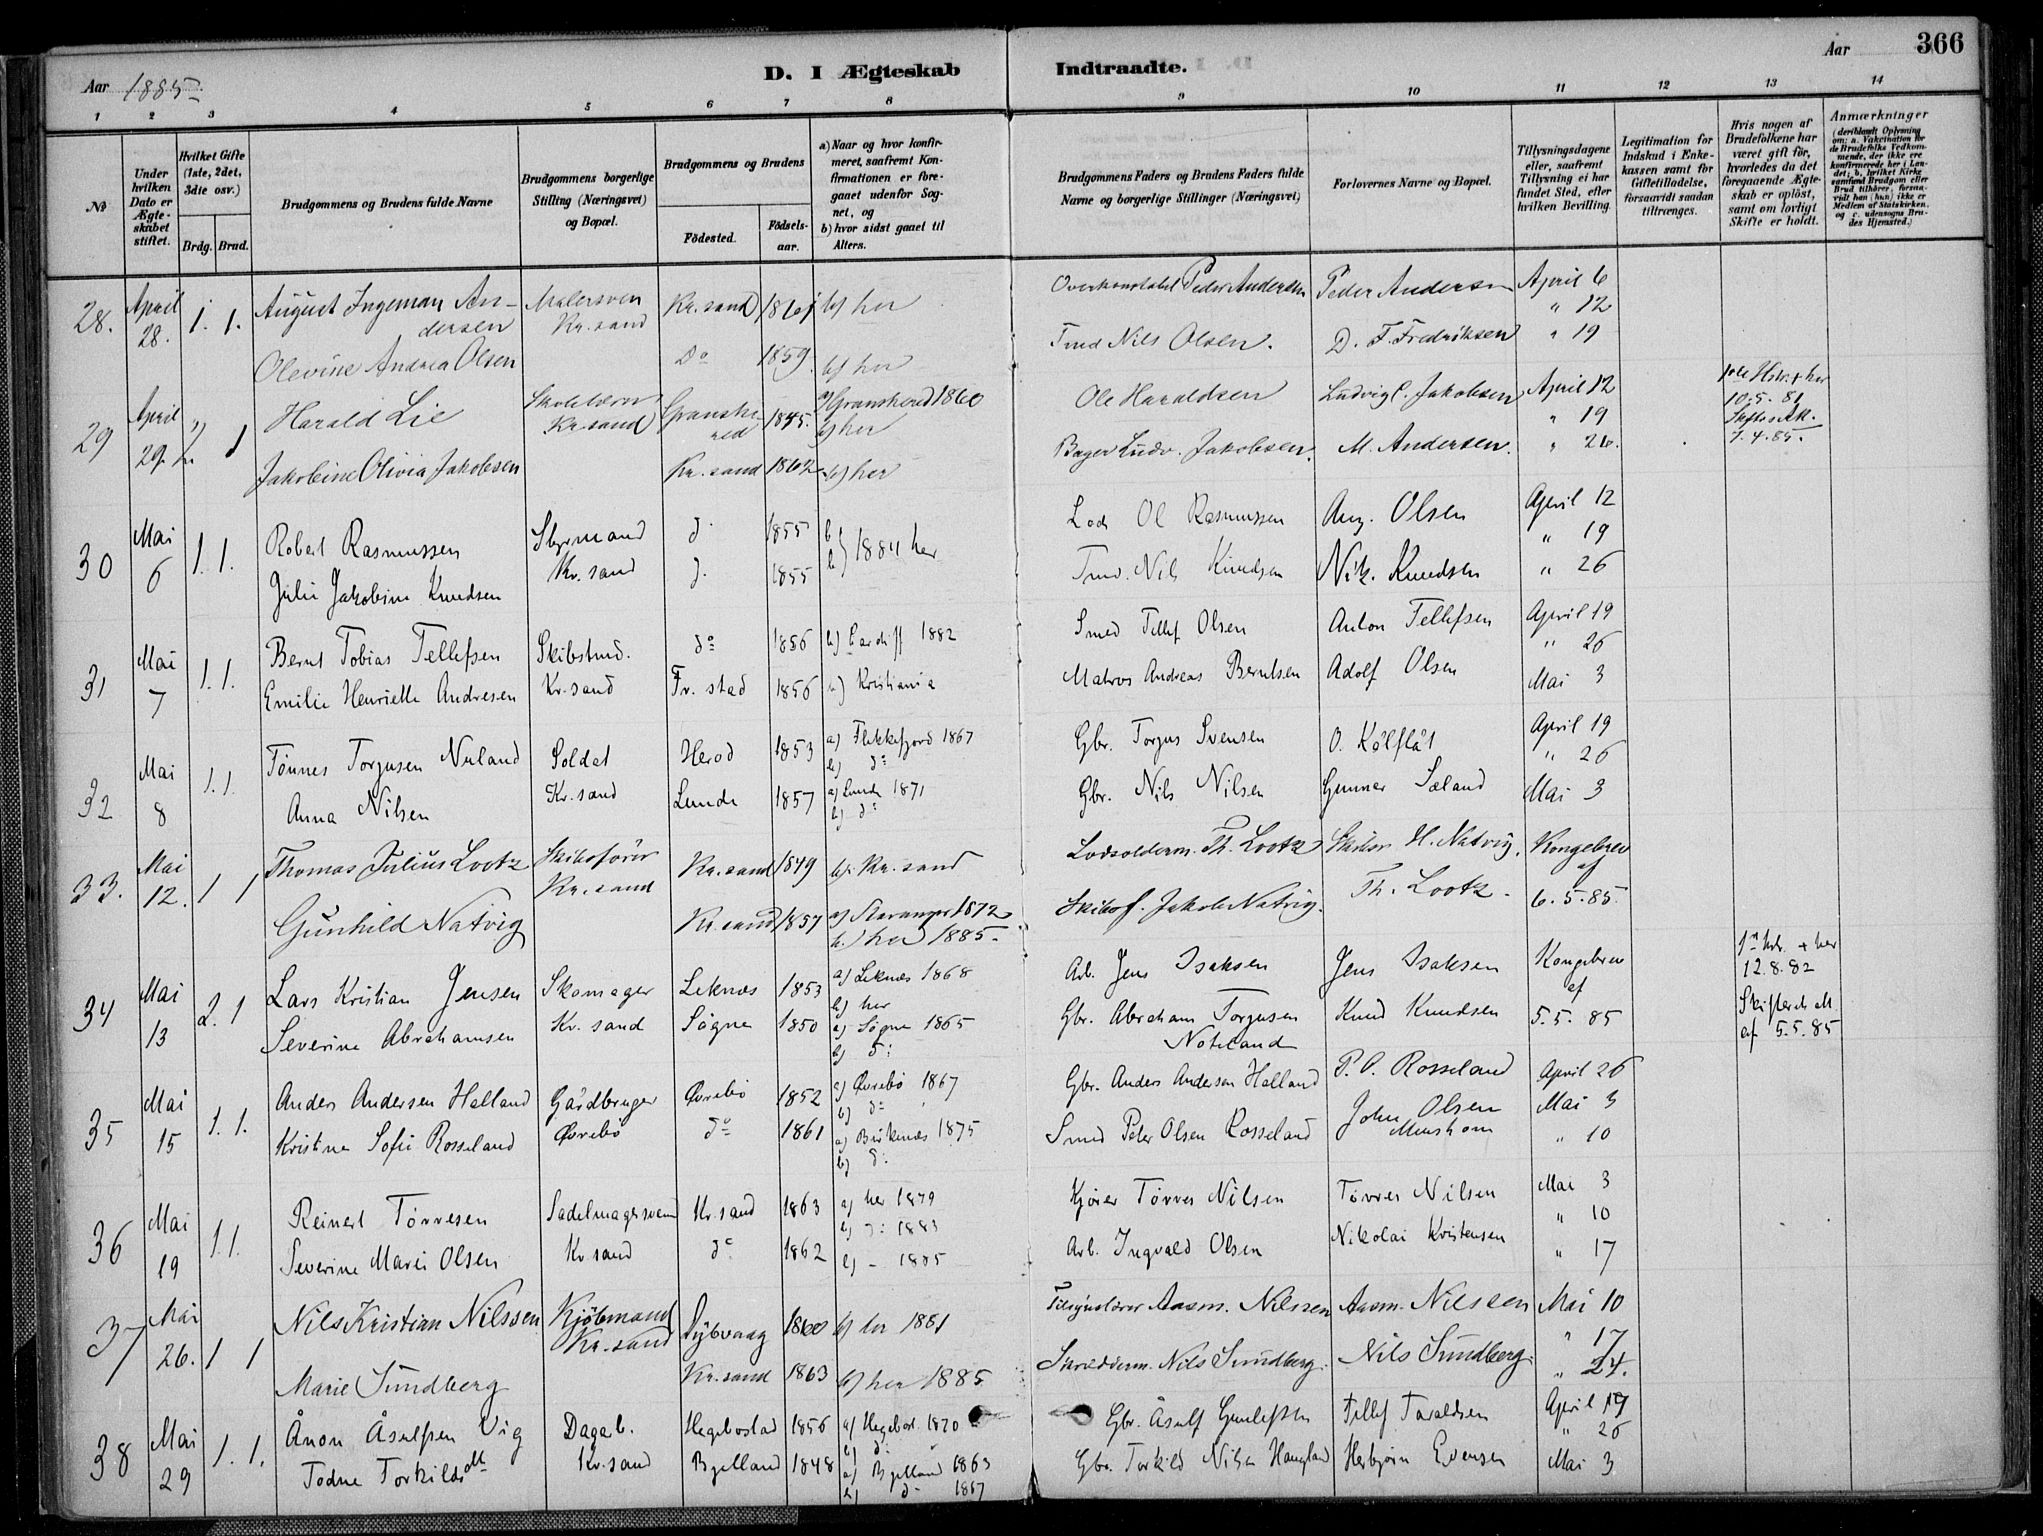 Aar 1885.
D. I Ægteskab Indtraadte.
Aar
366
1 2 3 4 5 6 7 8 9 10 11 12 13 14
№
Under hvilken Dato er Ægteskabet stiftet.
Hvilket Gifte (1ste, 2det, 3die osv.)
Brdg. Brud.
Brudgommens og Brudens fulde Navne
Brudgommens borgerlige Stilling (Næringsvei) og Bopæl.
Brudgommens og Brudens
Födested.
Födselsaar.
a) Naar og hvor konfirmeret, saafremt Konfirmationen er foregaaet udenfor Sognet, og
b) hvor sidst gaaet til Alters.
Brudgommens Faders og Brudens Faders fulde Navne og borgerlige Stillinger (Næringsvei)
Forlovernes Navne og Bopæl.
Tillysningsdagene eller, saafremt Tillysning ei har fundet Sted, efter hvilken Bevilling
Legitimation for Indskud i Enkekassen samt for Giftetilladelse, forsaavidt saadan tiltrænges.
Hvis nogen af Brudefolkene har været gift för, hvorledes da det foregaaende Ægteskab er oplöst, samt om lovligt Skifte er holdt.
Anmærkninger
28. April 28. 1. 1. August Ingeman Andersen Malersven Kr.sand Kr.sand 1861 b) her Overkonstabel Peder Andersen Peder Andersen April 6
" 12
Olevine Andrea Olsen Do 1859. b) her Tmd Nils Olsen. D. F. Fredriksen " 19
29 April 29. 2. 1 Harald Lie Skolelærer Kr.sand Gransherred 1845. a) Gransherad 1860 b) her Ole Haraldsen Ludvig C. Jakobsen April 12 1ste Hstr. + her 10.5.81
" 19 7.4.85.
Jakobine Olivia Jakobsen Kr.sand 1862 b) her Bager Ludv. Jakobsen. M. Andersen. " 26.
30 Mai 6 1. 1. Robert Rasmussen Styrmand d. 1855 Lods Ol Rasmussen Aug. Olsen April 12
b) 1884 her " 19
Julie Jakobine Knudsen Kr.sand d. 1855 Tmd. Nils Knudsen Nik. Knudsen " 26
31 Mai 7 1. 1. Bernt Tobias Tellefsen Skibstmd. do 1856 b) Cardiff 1882 Smed Tellef Olsen Anton Tellefsen April 19
" 26
Emilie Henriette Andresen Kr.sand Fr.stad 1856 b) Kristiania Matros Andreas Berntsen Adolf Olsen Mai 3
32 Mai 8 1. 1. Tönnes Torjusen Nuland Soldat Herod 1853 a) Flekkefjord 1867 b) do Gbr. Torjus Svensen O. Kålflåt April 19
" 26
Anna Nilsen Kr.sand Lunde 1857 a) Lunde 1871 b) do Gbr. Nils Nilsen Gunner Sæland Mai 3
33. Mai 12. 1 1 Thomas Julius Lootz Skibsförer Kr.sand Kr.sand 1849 b) Kr.sand Lodsolderm. Th. Lootz H. Natvig. Kongebrev af
Gunhild Natvig Kr.sand 1857 a) Stavanger 1872 b.) her 1885. Skibsf. Jakob Natvig. Th. Lootz. 6.5.85.
34 Mai 13 2. 1 Lars Kristian Jensen Skomager Leknæs 1853 a) Leknæs 1868 b) her Arb. Jens Isaksen Jens Isaksen Kongebrev af 1ste hstr. + her 12.8.82
Severine Abrahamsen Kr.sand Sögne 1850 a) Sögne 1865 b) d: Gbr. Abraham Torjusen Noteland Knud Knudsen 5.5.85 af 5.5.85
35 Mai 15 1. 1. Anders Andersen Helland Gårdbruger Øvrebö 1852 a) Øvrebö 1867 b) do Gbr. Anders Andersen Helland P. O. Rosseland April 26
Mai 3
Kristine Sofie Rosseland Øvrebö do 1861 a) Birkenæs 1875 b) d: Smed Peter Olsen Rosseland John Olsen " 10
36 Mai 19 1. 1. Reinert Tövresen Sadelmagersvend Kr.sand 1863 a) her 1879 b) d: 1883 Kjörer Tövres Nilsen Tövres Nilsen Mai 3
" 10
Severine Marie Olsen Kr.sand do 1862 b) - 1885 Arb. Ingvald Olsen Nikolai Kristensen " 17
37 Mai 26. 1 1 Nils Kristian Nilssen Kjöbmand Kr.sand Dybvaag 1860 b) her 1881 Aasm. Nilssen Aasm. Nilssen Mai 10
" 17
Marie Sundberg Kr.sand 1863 b) her 1885 Skrædderm. Nils Sundberg. Nils Sundberg. " 24.
38 Mai 29 1. 1. Ånon Åsulfsen Vig Dagab. Hegebostad 1856 a) Hegebost. 1870 b) d: Gbr. Åsulf Gunlefsen Tellef Taraldsen April 19
" 26
Todne Torkildsdt Kr.sand Bjelland 1848 a) Bjelland 1863 b) d- 1867 Gbr. Torkild Nilsen Haugland Herbjörn Evensen Mai 3